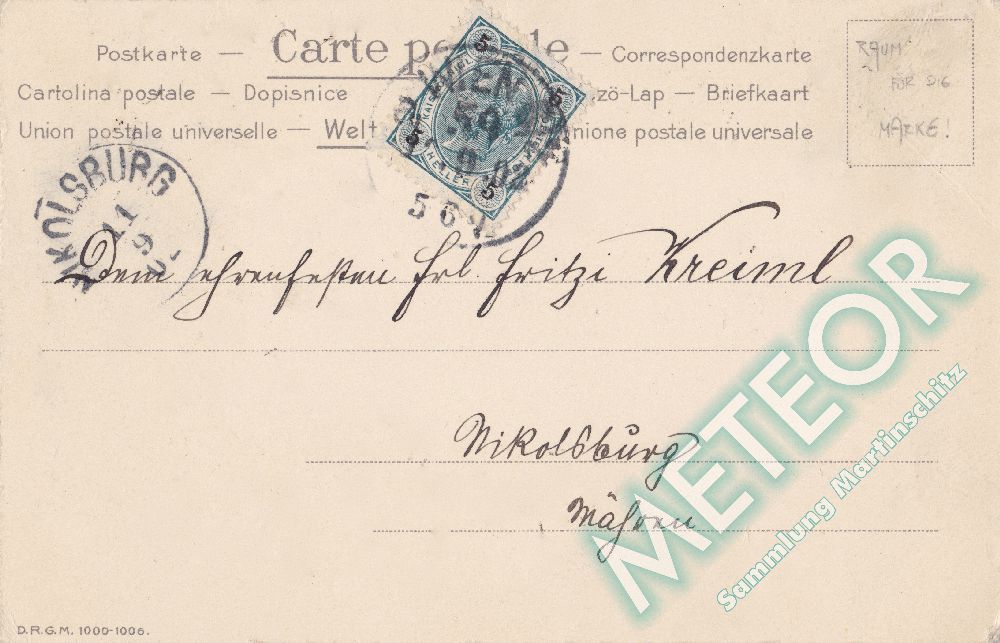 Postkarte — Carte — Correspondenzkarte
Cartolina postale — Dopisnice zö-Lap — Briefkaart
Union postale universelle — Welt nione postale universale
RAUM
FÜR DIE
MARKE!
5 5 5 5
HELLER
WIEN
59
9 02
56
NIKOLSBURG
11
9
Dem ehrenfesten Frl. Fritzi Kreiml
Nikolsburg
Mähren
METEOR
Sammlung Martinschitz
D.R.G.M. 1000-1006.